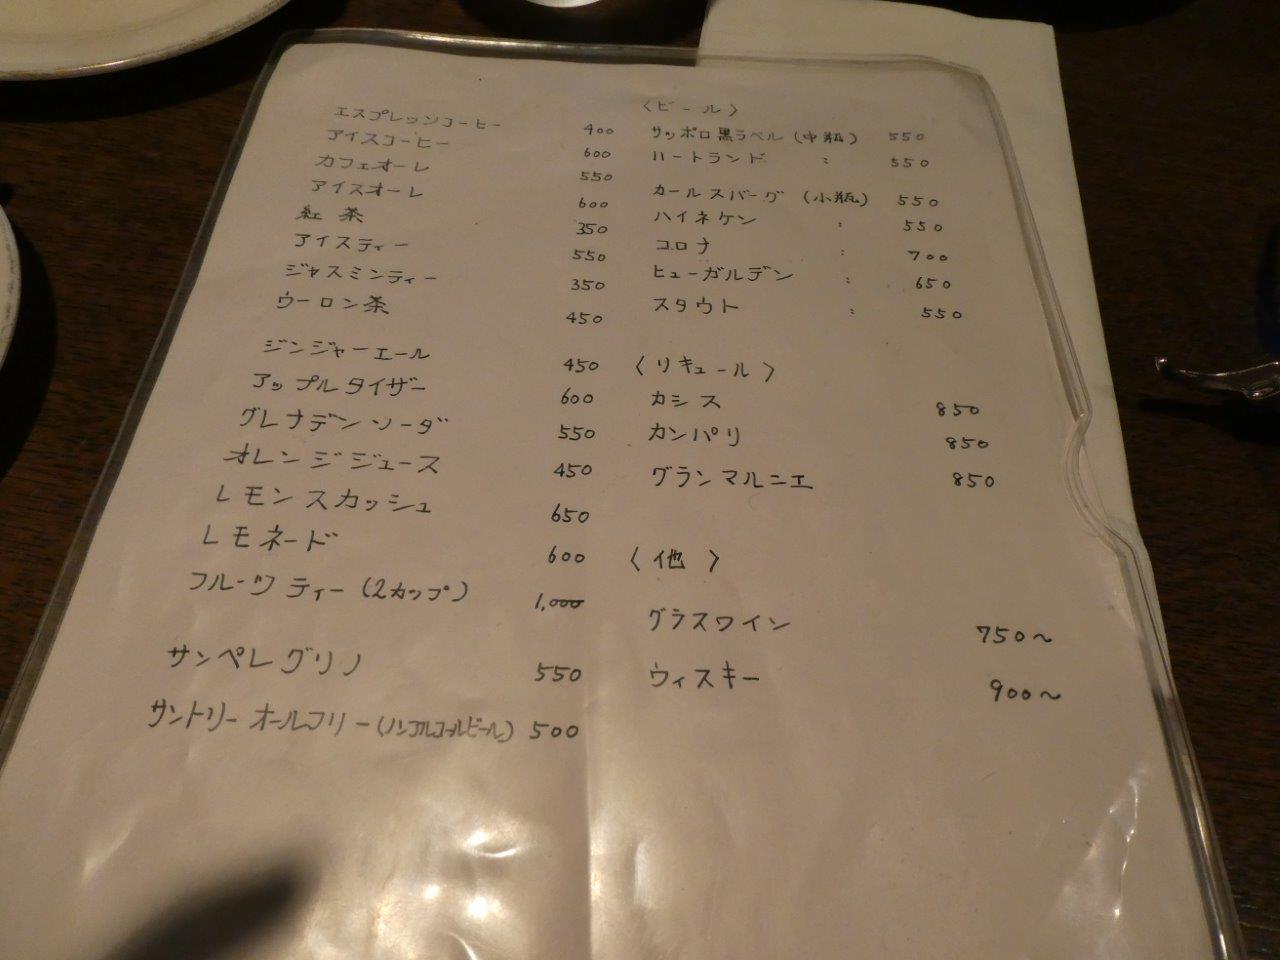 エスプレッソコーヒー 400
アイスコーヒー 600
カフェオーレ 550
アイスオーレ 600
紅茶 350
アイスティー 550
ジャスミンティー 350
ウーロン茶 450
ジンジャーエール 450
アップルタイザー 600
グレナデンソーダ 550
オレンジジュース 450
レモンスカッシュ 650
レモネード 600
フルーツティー(2カップ) 1,000
サンペレグリノ 550
サントリーオールフリー(ノンアルコールビール) 500
〈ビール〉
サッポロ黒ラベル(中瓶) 550
ハートランド : 550
カールスバーグ (小瓶) 550
ハイネケン : 550
コロナ : 700
ヒューガルデン : 650
スタウト : 550
〈リキュール〉
カシス 850
カンパリ 850
グランマルニエ 850
〈他〉
グラスワイン 750〜
ウィスキー 900〜